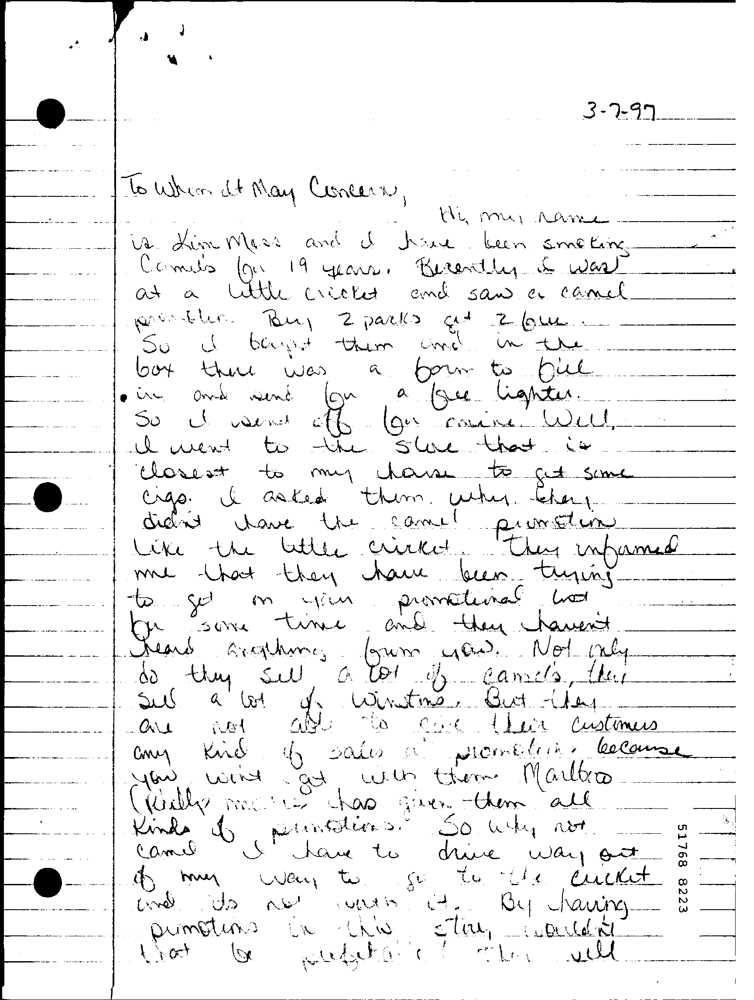 3-7-97
To Whom It May Concern,
Hi, my name
is Kim Moss and I have been smoking
Camels for 19 years. Recently I was
at a little cricket and saw a camel
Buy 2 packs get 2 free
So I bought them and in the
box there was a form to fill
in and send for a free lighter.
So I send off for mine. Well,
I went to the store that is
closest to my house to get some
cigs. I asked them why they
didn't have the camel promotion
like the little cricket. They informed
me that they have been trying
to get on your promotional list
for some time and they haven't
heard anything from you. Not only
do they sell a lot of camels, they
sell a lot of Winstons. But they
are not able to give their customers
any kind of sales or promotions because
you wont get with them. Marlboro
(Phillip has given them all
kinds of promotions. So why not
camel I have to drive way out
of my way to go to the cricket
and its not worth it. By having
promotions in this store, wouldn't
that be They sell
51768 8223